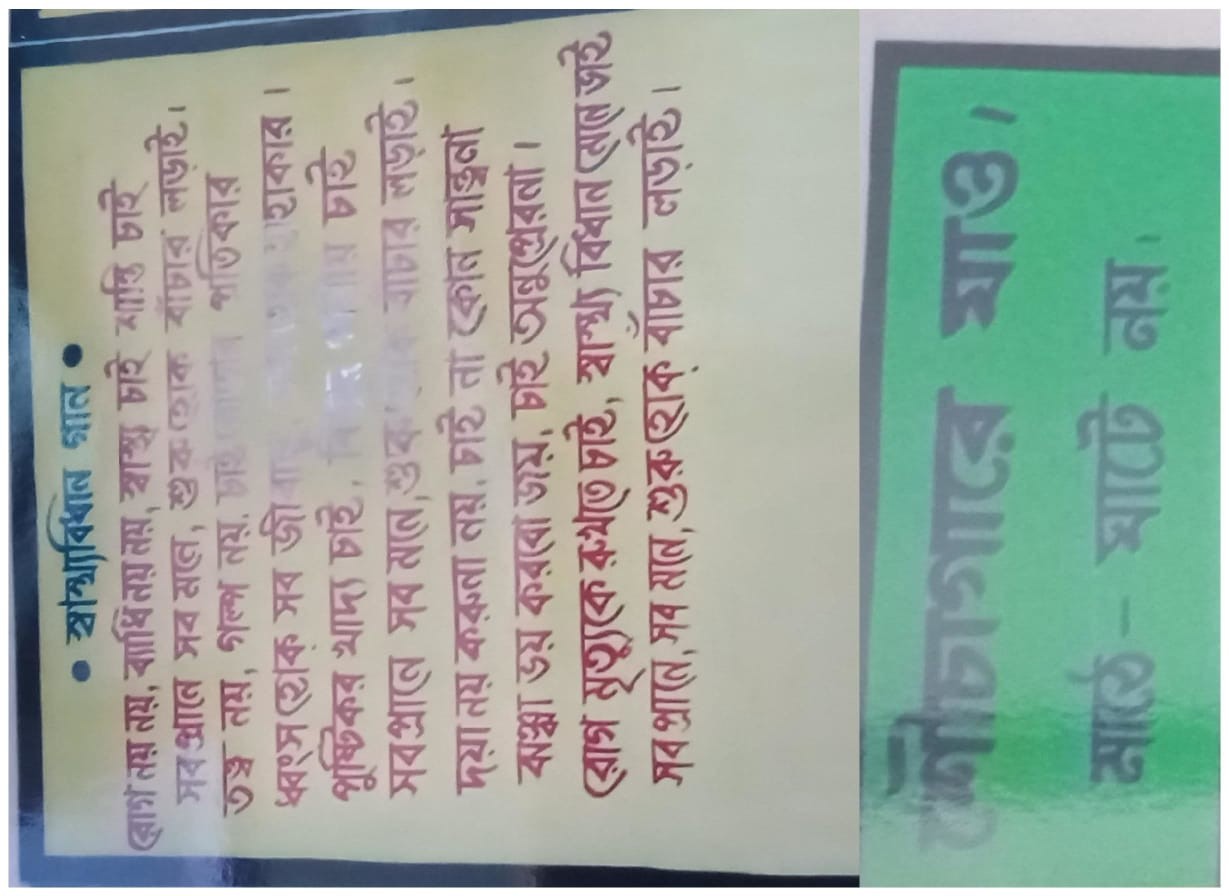 • স্বাস্থ্যবিধান গান •
রোগ নয় নয়, ব্যাধি নয় নয়, স্বাস্থ্য চাই শান্তি চাই
সবপ্রানে সব মনে, শুরু হোক বাঁচার লড়াই।
তত্ত্ব নয়, গল্প নয়, চাই প্রতিকার
ধ্বংস হোক সব জীবাণু হাহাকার।
পুষ্টিকর খাদ্য চাই, চাই
সবপ্রানে সব মনে, শুরু হোক বাঁচার লড়াই।
দয়া নয় করুনা নয়, চাই না কোন সান্ত্বনা
ঝঞ্ঝা ভয় করবো জয়, চাই অনুপ্রেরনা।
রোগ মৃত্যুকে রুখতে চাই, স্বাস্থ্য বিধান মেনে ভাই
সবপ্রানে, সব মনে, শুরু হোক্ বাঁচার লড়াই।
শৌচাগারে যাও।
মাঠে - ঘাটে নয়।